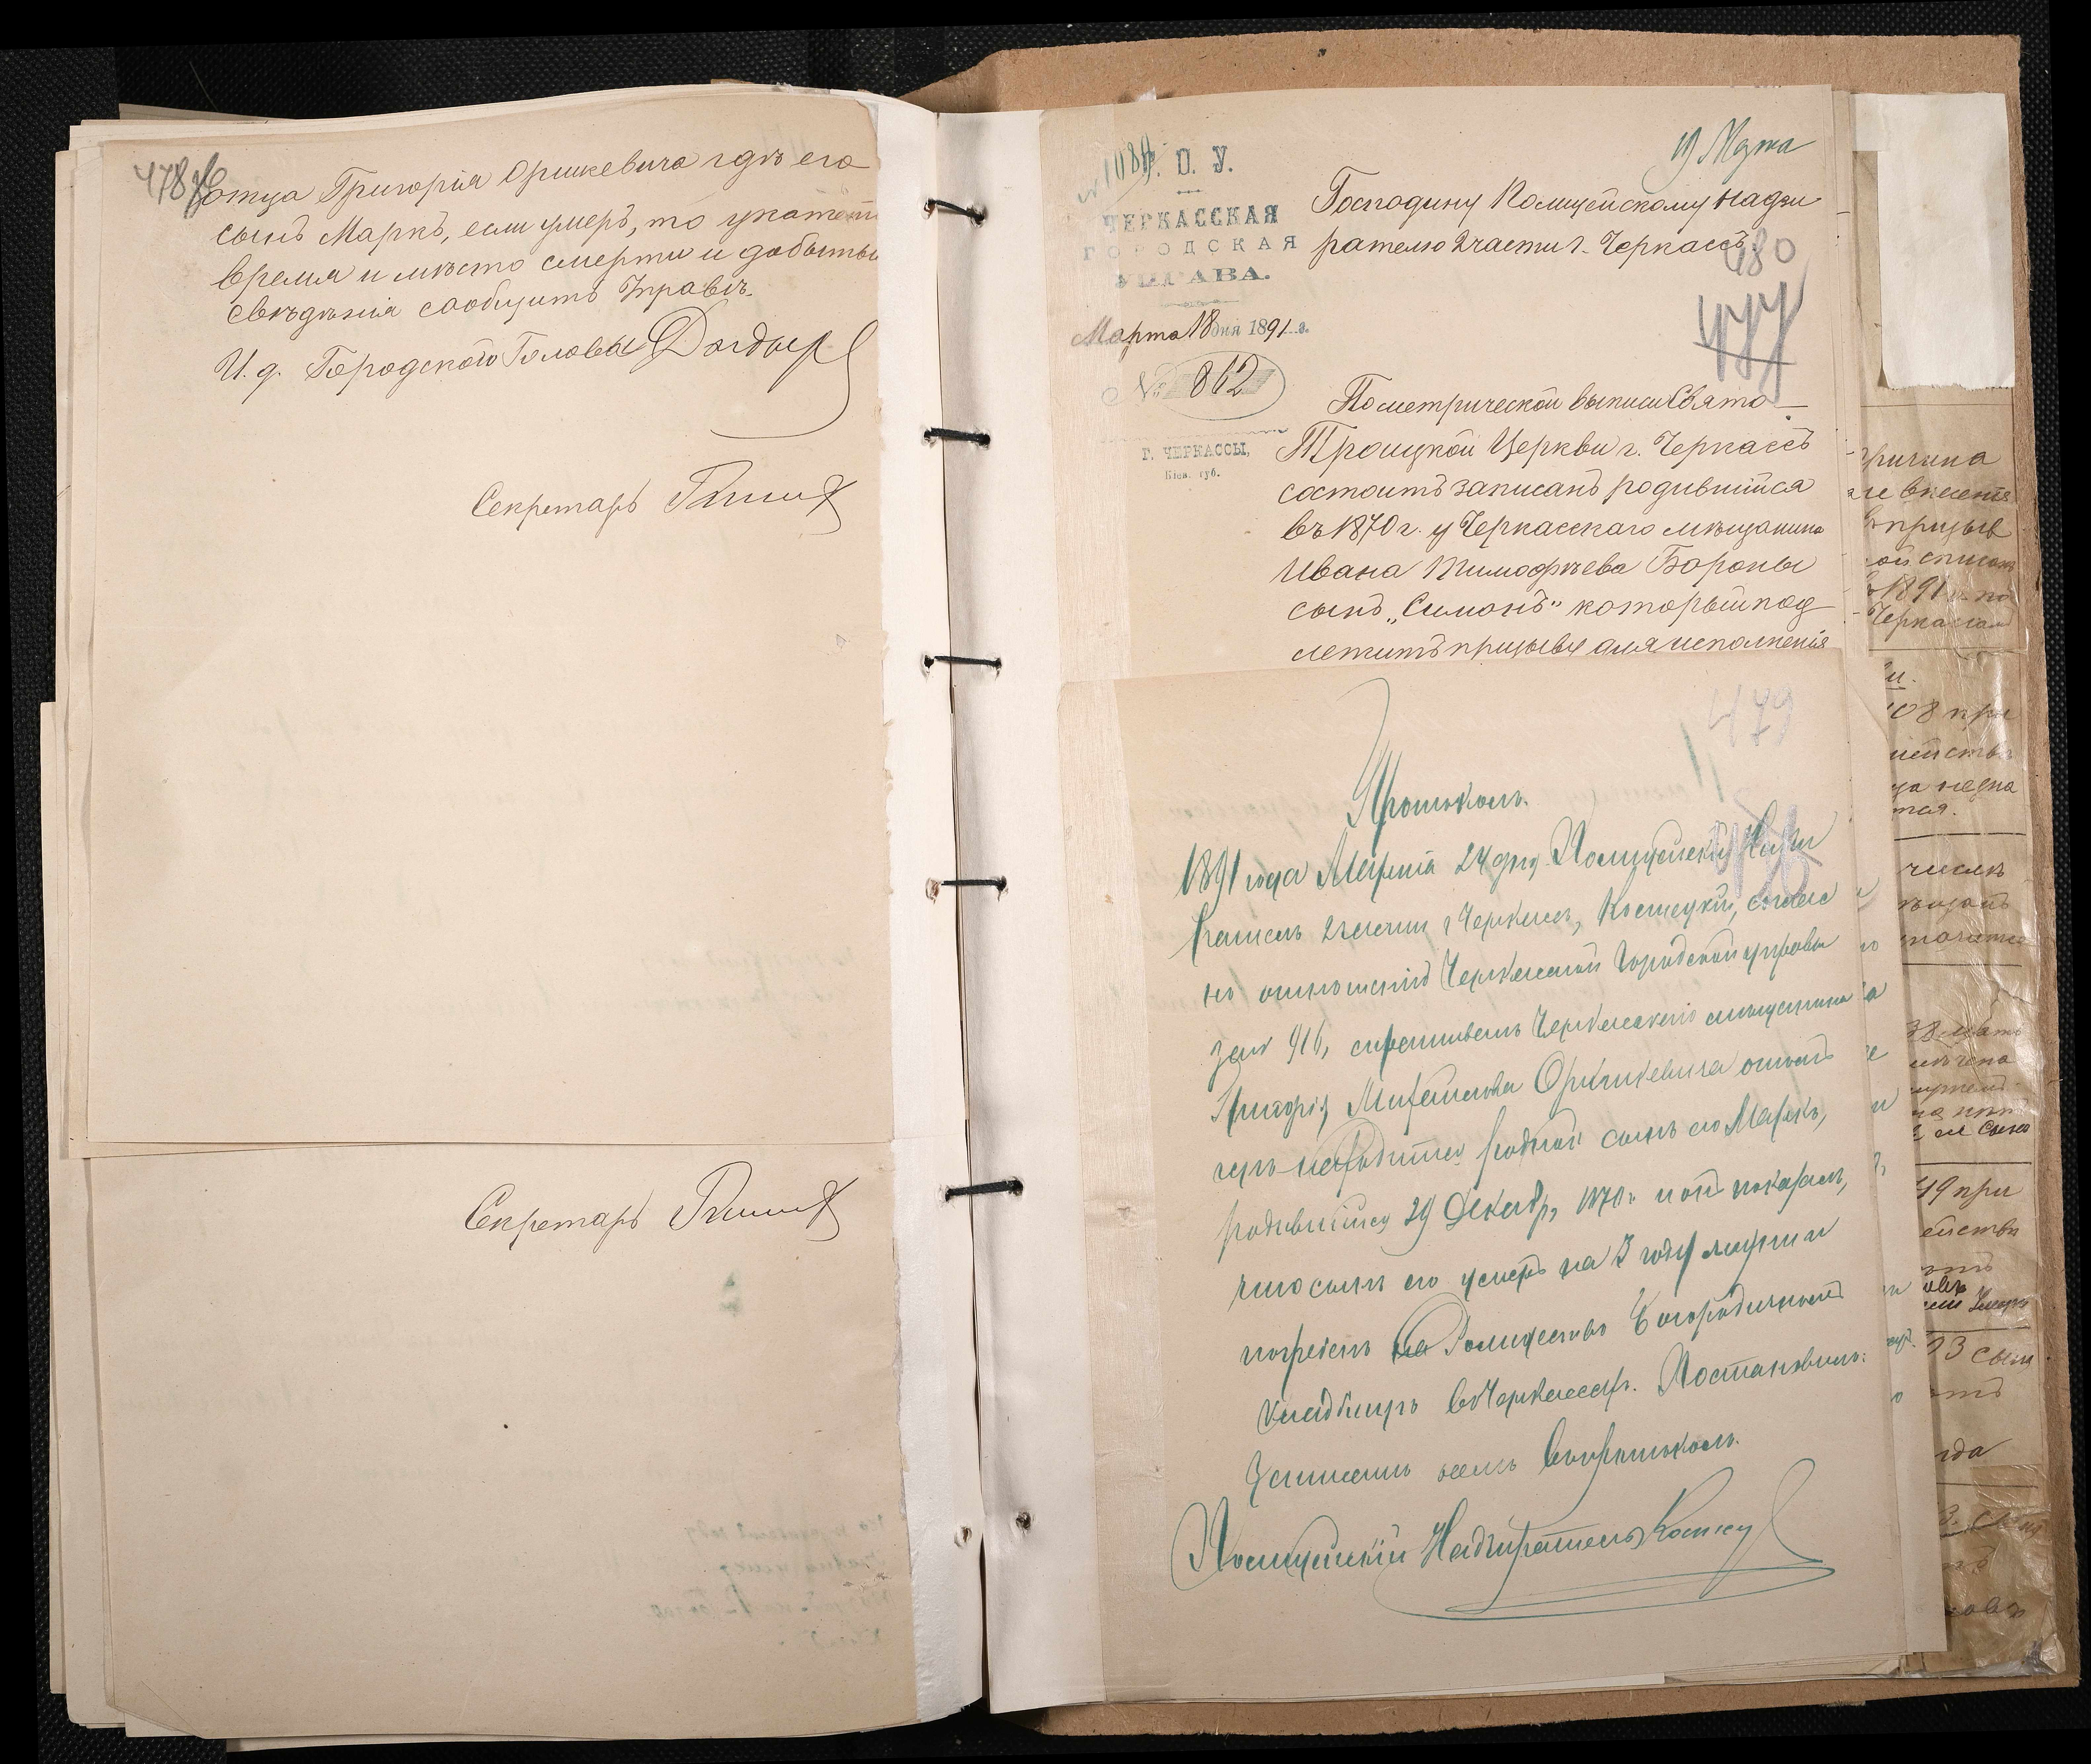 478
отца Григорія Оршкевича гдѣ его
сынъ Маркъ, если умеръ, то указать
время и мѣсто смерти и добытыя
свѣдѣнія сообщить Управѣ.
И. д. Городского Головы
Секретарь
Секретарь
№ 1080
19 Марта
Г. О. У.
ЧЕРКАССКАЯ
ГОРОДСКАЯ
УПРАВА.
Марта 18 дня 1891 г.
№ 862
Г. ЧЕРКАССЫ,
Кіев. губ.
Господину Полицейскому Надзи
рателю 2 части г. Черкассъ
480
477
По метрической выписи Свято-
Троицкой Церкви г. Черкассъ
состоитъ записанъ родившійся
въ 1870 г. у Черкасскаго мѣщанина
Ивана Тимофѣева Бороны
сынъ „Симонъ" который под
лежитъ призыву для исполненія
479
Протоколъ.
1891 года Марта 24 дня Полицейскій Надзи
ратель 2 части г Черкассъ, Костецкій, соглас
но отношенію Черкасской Городской управы
за № 916, спрашивалъ Черкасскаго мѣщанина
Григорія Михайлова Оршкевича
находится родной сынъ его Маркъ,
родившійся 29 Декабря 1870 г. и онъ показалъ,
что сынъ его умеръ на 3 году жизни и
погребенъ на Рождество Богородичномъ
кладбищѣ въ Черкассахъ. Постановилъ:
Записать въ протоколъ.
Полицейскій Надзиратель
причина
внесенія
призыв
списокъ
1891
Черкассы
108 при
числѣ
49 при
сына